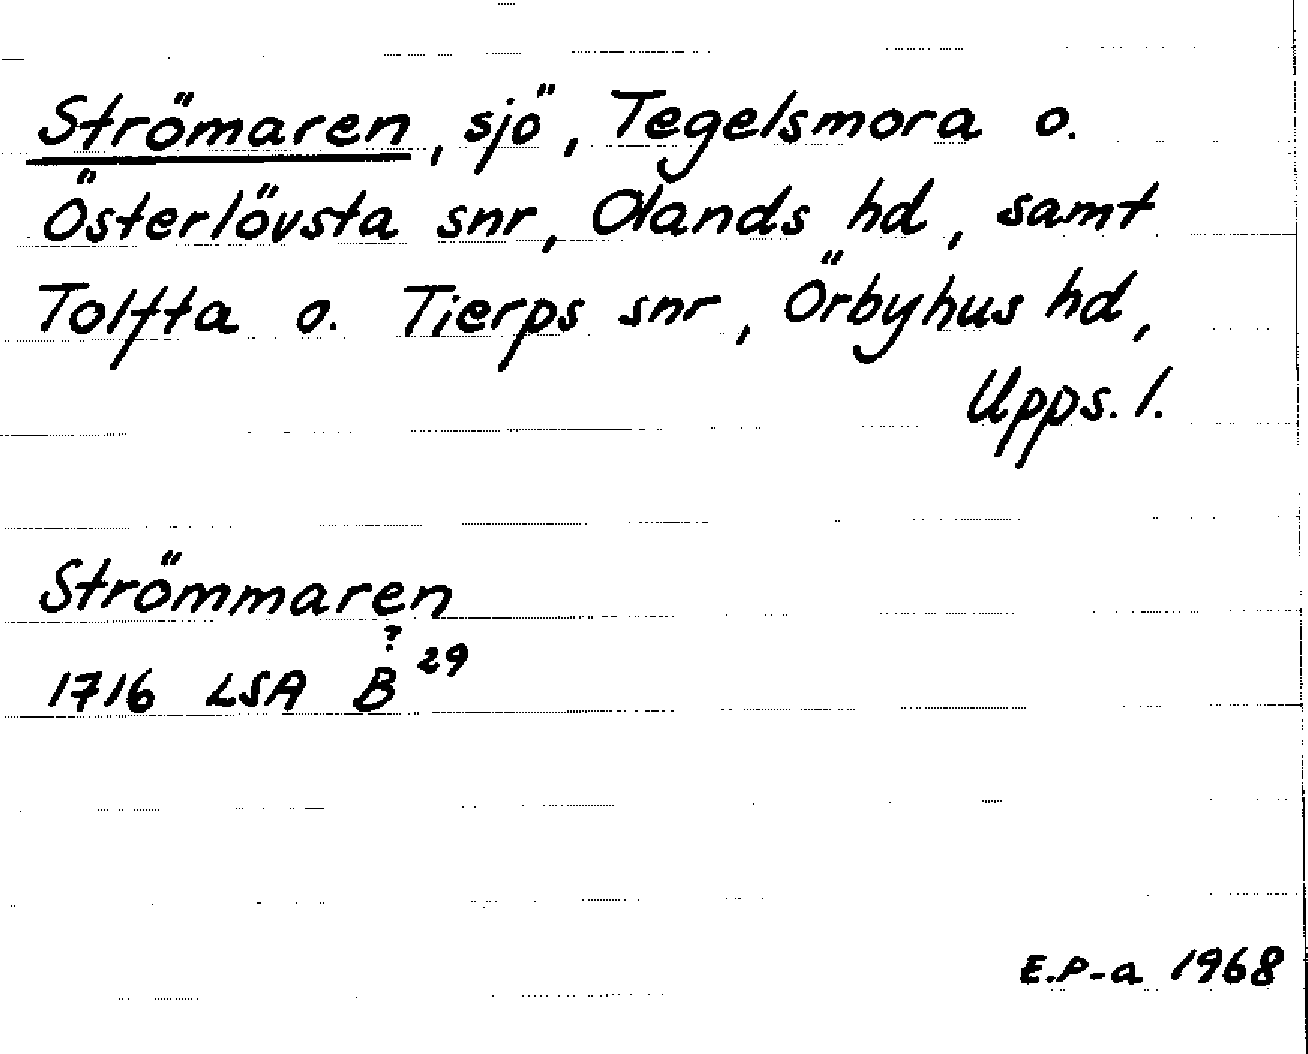 Strömaren, sjö, Tegelsmora o.
Österlövsta snr, Olands hd, samt
Tolfta o. Tierps snr, Örbyhus hd,
Upps. l.
Strömmaren
?
1716 LSA B 29
E.P-a 1968